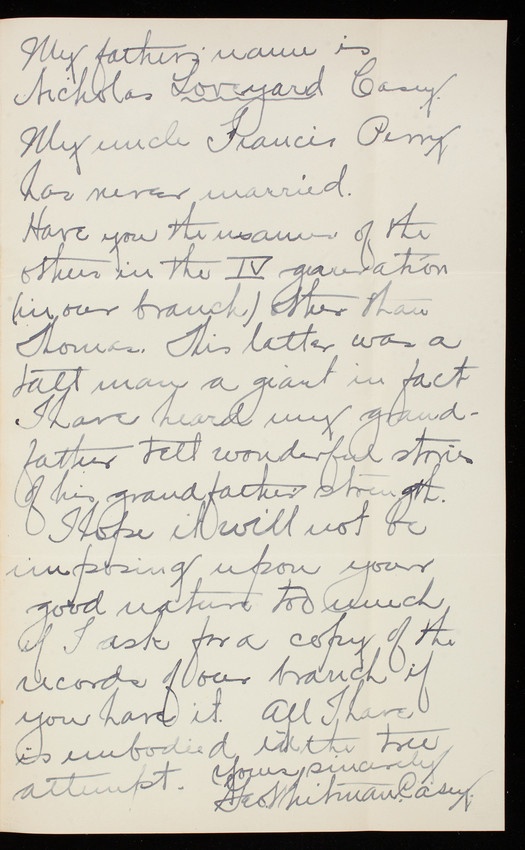 My fathers name is
Nicholas Loveyard Casey.
My uncle Francis Perry
has never married.
Have you the names of the
others in the IV generation
(in our branch) other than
Thomas. This latter was a
tall man a giant in fact
I have heard my grand-
father tell wonderful stories
of his grandfather strength.
I Hope it will not be
imposing upon your
good nature too much
if I ask for a copy of the
records of our branch if
you have it. All I have
is embodied in the tree
attempt. Yours sincerely
Geo Whitman Casey.